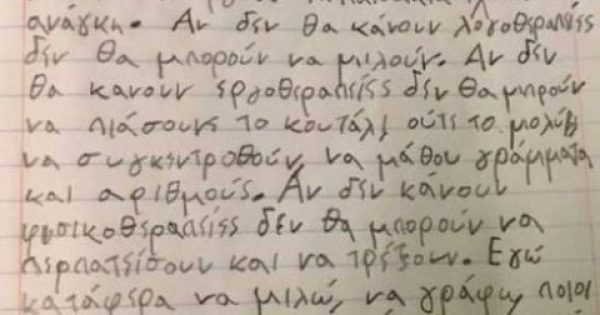 ανάγκη. Αν δεν θα κάνουν λογοθεραπείες
δεν θα μπορούν να μιλούν. Αν δεν
θα κανουν εργοθεραπείες δεν θα μπορούν
να πιάσουνε το κουτάλι ούτε το μολύβ
να συγκεντροθούν, να μάθου γράμματα
και αριθμούς. Αν δεν κάνουν
φυσικοθεραπείες δεν θα μπορούν να
περπατείσουν και να τρέξουν. Εγώ
κατάφερα να μιλώ, να γράφω, ποιοι